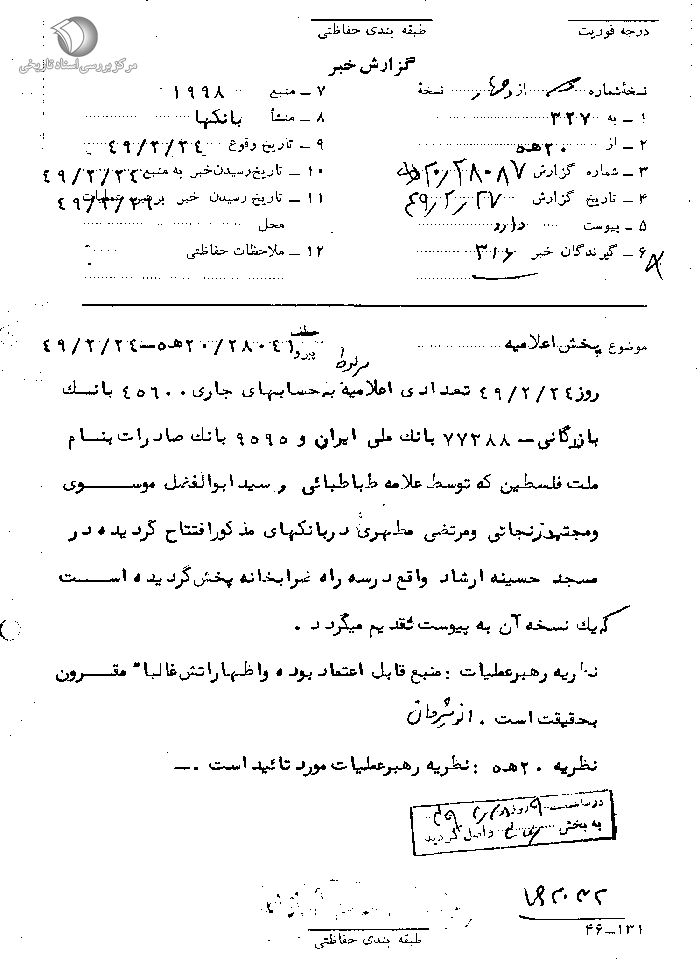 درجه فوریت
طبقه بندی حفاظتی
مرکز بررسی اسناد تاریخی
گزارش خبر
نسخهٔ شماره از چهار نسخهٔ
۱ ـ به ۳۲۷
۲ ـ از ۲۰ه۵
۳ ـ شماره گزارش ۲۸۰۸۷/۲۰ه۵
۴ ـ تاریخ گزارش ۴۹/۲/۲۷
۵ ـ پیوست دارد
۶ ـ گیرندگان خبر ۳۱۶
۷ ـ منبع ۱۹۹۸
۸ ـ منشأ بانکها
۹ ـ تاریخ وقوع ۴۹/۲/۲۴
۱۰ ـ تاریخ رسیدن خبر به منبع ۴۹/۲/۲۴
۱۱ ـ تاریخ رسیدن خبر برهبر عملیات ۴۹/۲/۲۶
محل
۱۲ ـ ملاحظات حفاظتی
موضوع پخش اعلامیه
پیرو ۲۸۰۴۱/۲۰ه۵ـ۴۹/۲/۲۴
روز ۴۹/۲/۲۴ تعدادی اعلامیه مربوط به حسابهای جاری ۴۵۶۰۰ بانک
بازرگانی ـ ۷۷۲۸۸ بانک ملی ایران و ۹۵۹۵ بانک صادرات بنام
ملت فلسطین که توسط علامه طباطبائی و سید ابوالفضل موسوی
ومجتهد زنجانی ومرتضی مطهری در بانکهای مذکور افتتاح گردیده در
مسجد حسینه ارشاد واقع درسه راه ضرابخانه پخش گردیده است
که یک نسخه آن به پیوست تقدیم میگردد .
نظریه رهبر عملیات : منبع قابل اعتماد بوده و اظهاراتش غالبا" مقرون
بحقیقت است . انوشیروان
نظریه ۲۰ه۵ : نظریه رهبر عملیات مورد تائید است .ـ
در ساعت ۹ روز ۴۹/۲/۲۸
به بخش واصل گردید
۴۶ـ۱۳۱
طبقه بندی حفاظتی